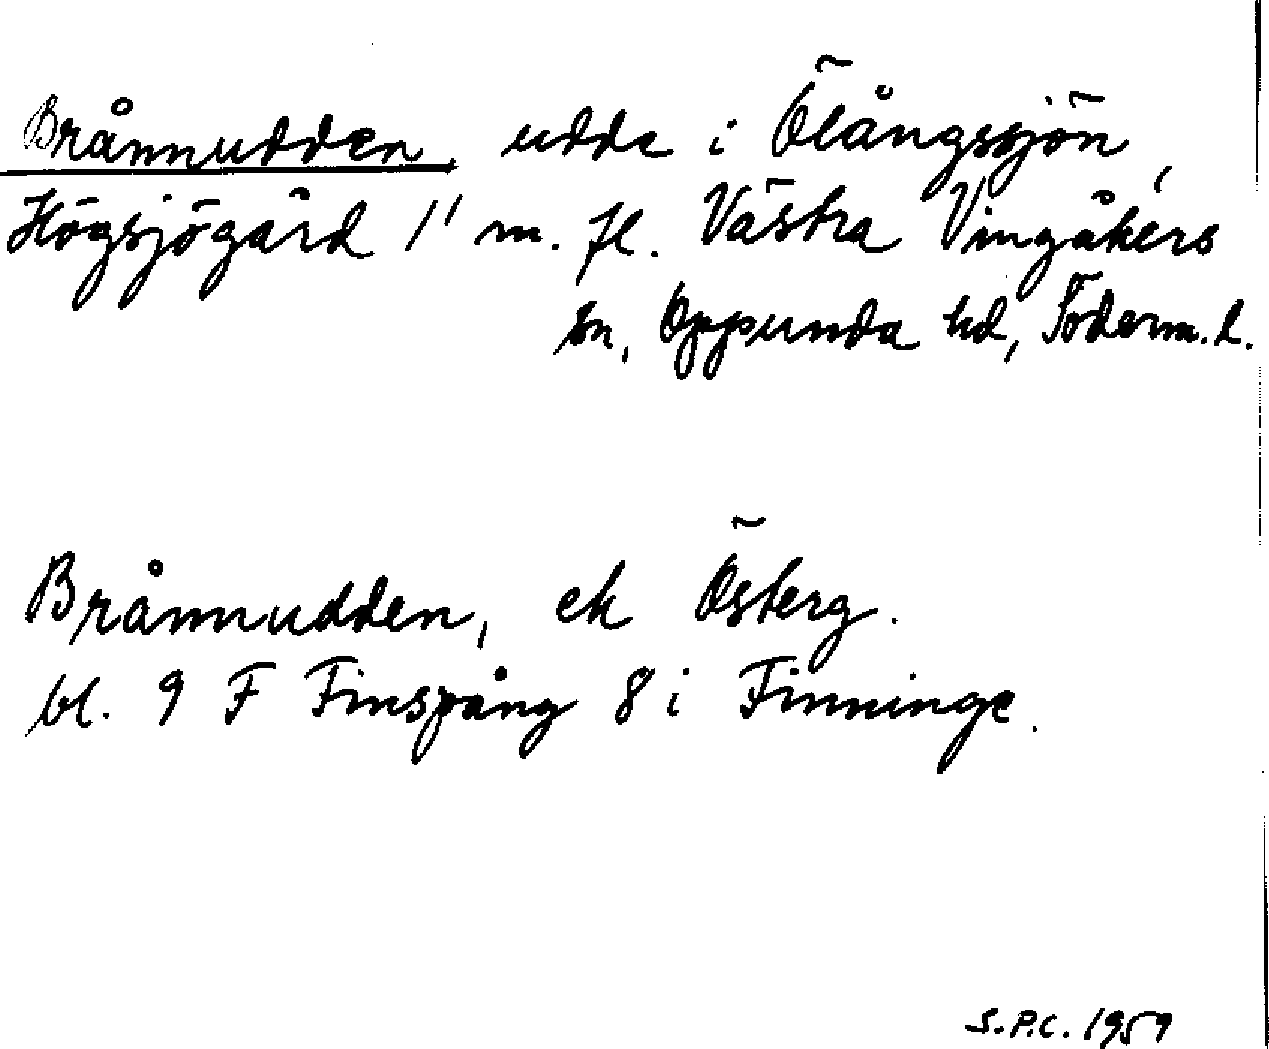 Brånnudden, udde i Ölångssjön,
Högsjögård 1¹ m. fl. Västra Vingåkers
sn, Oppunda hd, Söderm. l.
Brånnudden, ek Österg.
bl. 9 F Finspång 8 i Finninge.
S.P.C. 1959